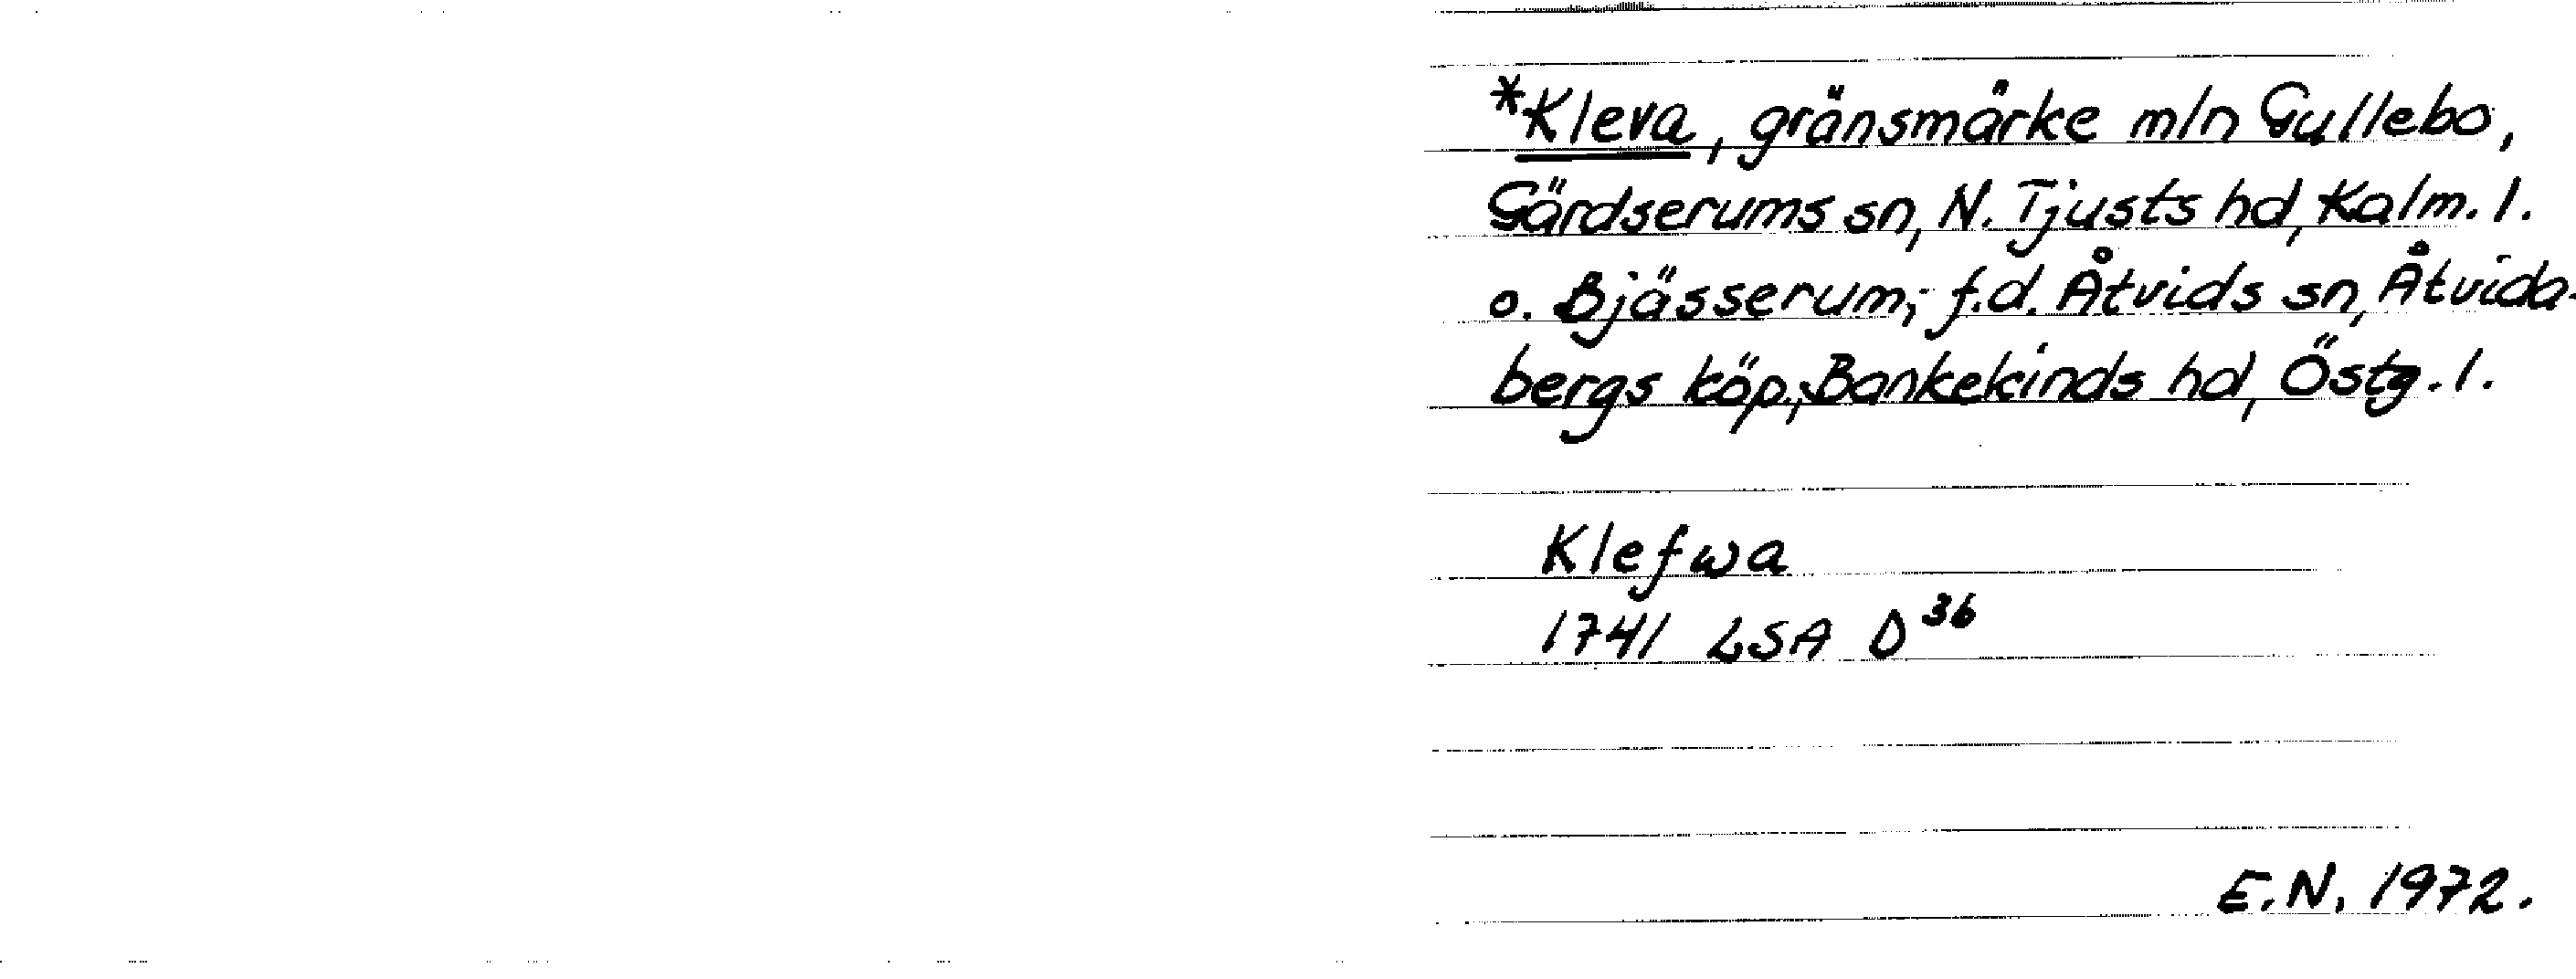 *Kleva, gränsmärke mln Gullebo,
Gärdserums sn, N. Tjusts hd, Kalm. l.
o. Bjässerum, f.d. Åtvids sn, Åtvida-
bergs köp, Bankekinds hd, Östg. l.
Klefwa
1741 LSA D 36
E.N. 1972.